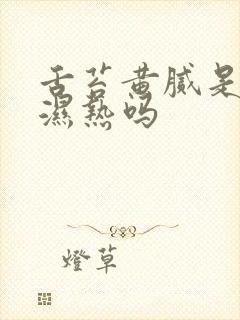 舌苔黄腻是
濕熱吗
燈草